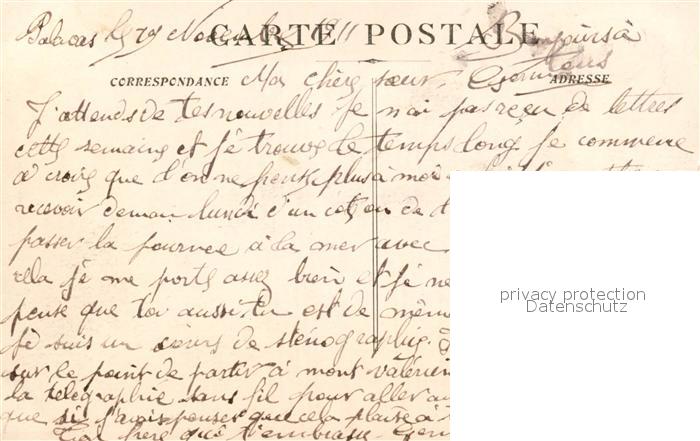 Palavas le 19 Novembre 1911
CARTE POSTALE
Bonjours à
tous
CORRESPONDANCE
ADRESSE
Ma chère sœur Germaine
J'attends de tes nouvelles je n'ai pas reçu de lettres
cette semaine et je trouve le temps long je commence
a croire que l'on ne pense plus à moi
recevoir demain lundi d'un coté ou de
passer la journée à la mer avec
cela je me porte assez bien et je ne
pense que toi aussi tu est de même
je suis un cours de sténographie.
sur le point de partir à mont valérien
la télégraphie sans fil pour aller au
que si j'avais penser que cela plaise à
Ton frère qui t'embrasse
privacy protection
Datenschutz